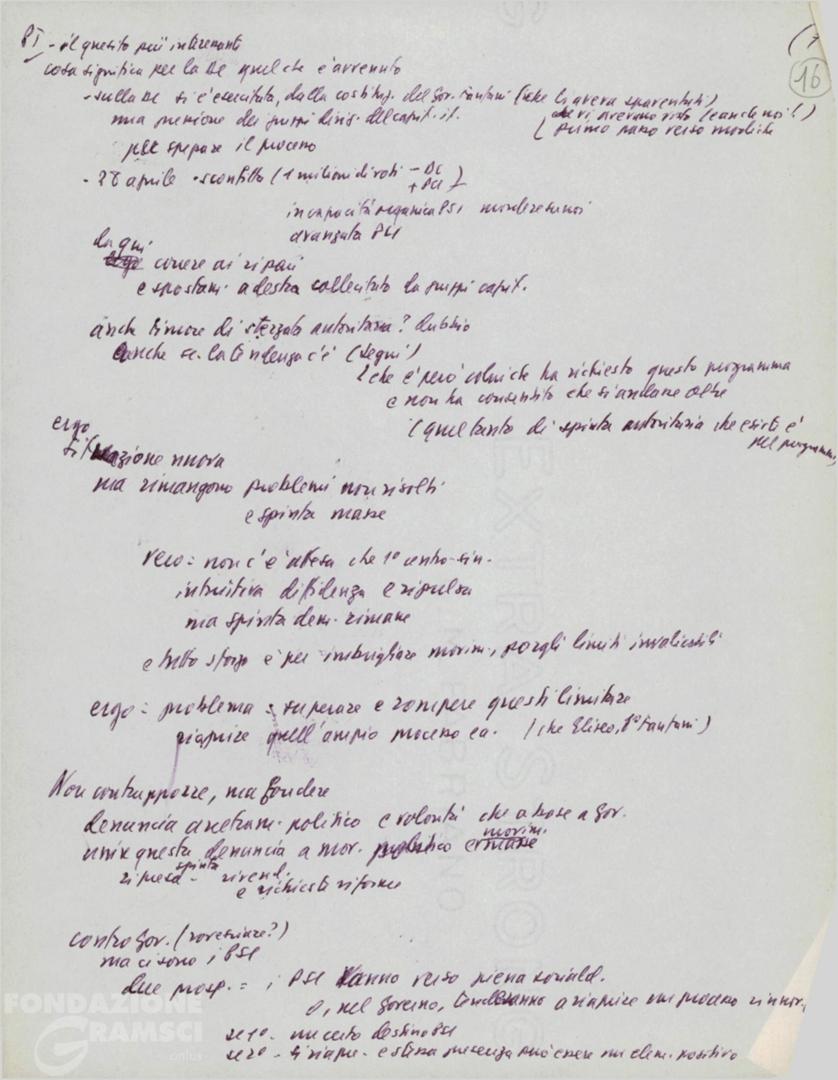 (1
16
PI - il quesito più interessante
cosa significa per la DC quel che è avvenuto
- sulla DC si è esercitata, dalla costituz. del gov. Fanfani (che li aveva spaventati)
che vi avevano visto (e anche noi!)
una pressione dei gruppi dirig. del capit. it.
primo passo verso modifiche
per spezzare il processo
- 28 aprile - sconfitta (1 milione di voti - DC
+ PCI)
incapacità organica PSI
avanzata PLI
da qui
correre ai ripari
e spostarsi a destra sollecitato da gruppi capit.
anche timore di sterzata autoritaria? dubbio
anche se la tendenza c'è (Segni)
che è però colui che ha richiesto questo programma
e non ha consentito che si andasse oltre
(quel tanto di spinta autoritaria che esiste è
nel programma)
ergo
situazione nuova
ma rimangono problemi non risolti
e spinta masse
vero = non c'è attesa che 1° centro-sin.
intuitiva diffidenza e ripulsa
ma spinta dem. rimane
e tutto sforzo è per imbrigliare movim., porgli limiti invalicabili
ergo = problema = superare e rompere questi limiti
riaprire quell'ampio processo ca. (che Eliseo, 1° Fanfani)
Non contrapporre, ma fondere
denuncia arretram. politico e volontà che a base a gov.
unire questa denuncia a mov. politico e movim. masse
ripresa - spinta rivend.
e richieste riforme
contro gov. (rovesciare?)
ma ci sono i PSI
due prosp. = i PSI vanno verso piena sociald.
o, nel governo, tenderanno a riaprire un processo rinnov.
se 1° - un certo destino PSI
se 2° - si riapre - e stessa presenza può essere un elem. positivo
FONDAZIONE
GRAMSCI
onlus